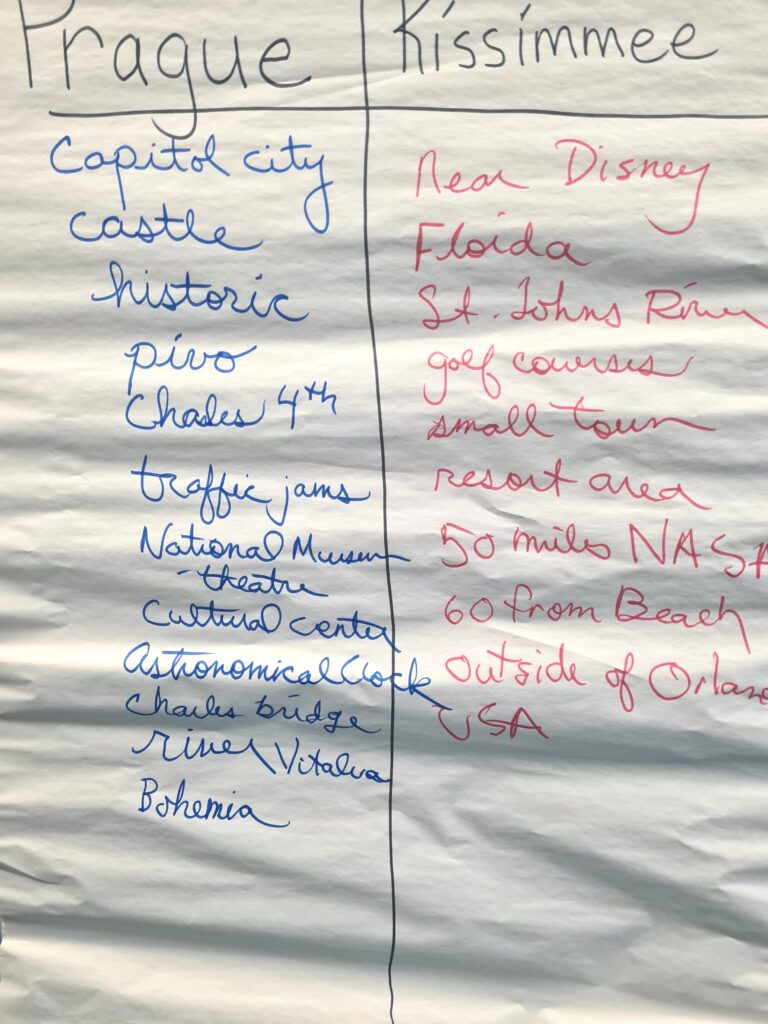 Prague
Kissimmee
Capitol city
castle
historic
pivo
Chales 4th
traffic jams
National Museum
- theatre
Cultural center
Astronomical Clock
Charles bridge
river Vitalva
Bohemia
near Disney
Floida
St. Johns River
golf courses
small town
resort area
50 miles NASA
60 from Beach
outside of Orlando
USA